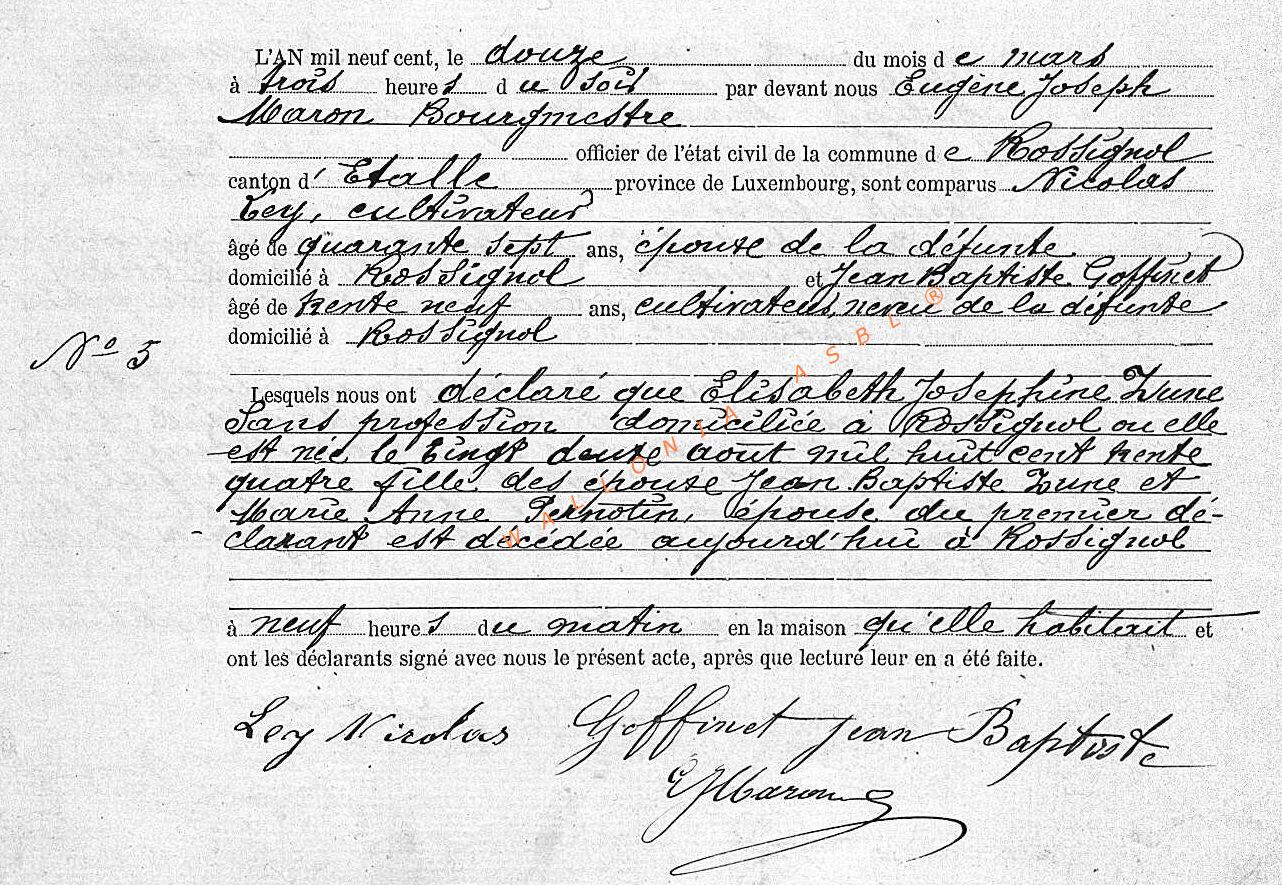 L'AN mil neuf cent, le douze du mois de mars
à trois heures du soir par devant nous Eugène Joseph
Maron Bourgmestre
officier de l'état civil de la commune de Rossignol
canton d'Etalle province de Luxembourg, sont comparus Nicolas
Ley, cultivateur
âgé de quarante sept ans, épouse de la défunte
domicilié à Rossignol et Jean Baptiste Goffinet
âgé de trente neuf ans, cultivateur, neveu de la défunte
domicilié à Rossignol
N° 5
Lesquels nous ont déclaré que Elisabeth Josephine Zune
Sans profession domiciliée à Rossignol ou elle
est née le vingt deuxe août mil huit cent trente
quatre fille des épouse Jean Baptiste Zune et
Marie Anne Pernotin, épouse du premier dé-
clarant est décédée aujourd'hui à Rossignol
à neuf heures du matin en la maison qu'elle habitait et
ont les déclarants signé avec nous le présent acte, après que lecture leur en a été faite.
Ley Nicolas Goffinet Jean Baptiste
EJMaron
WALLONIA ASBL ®